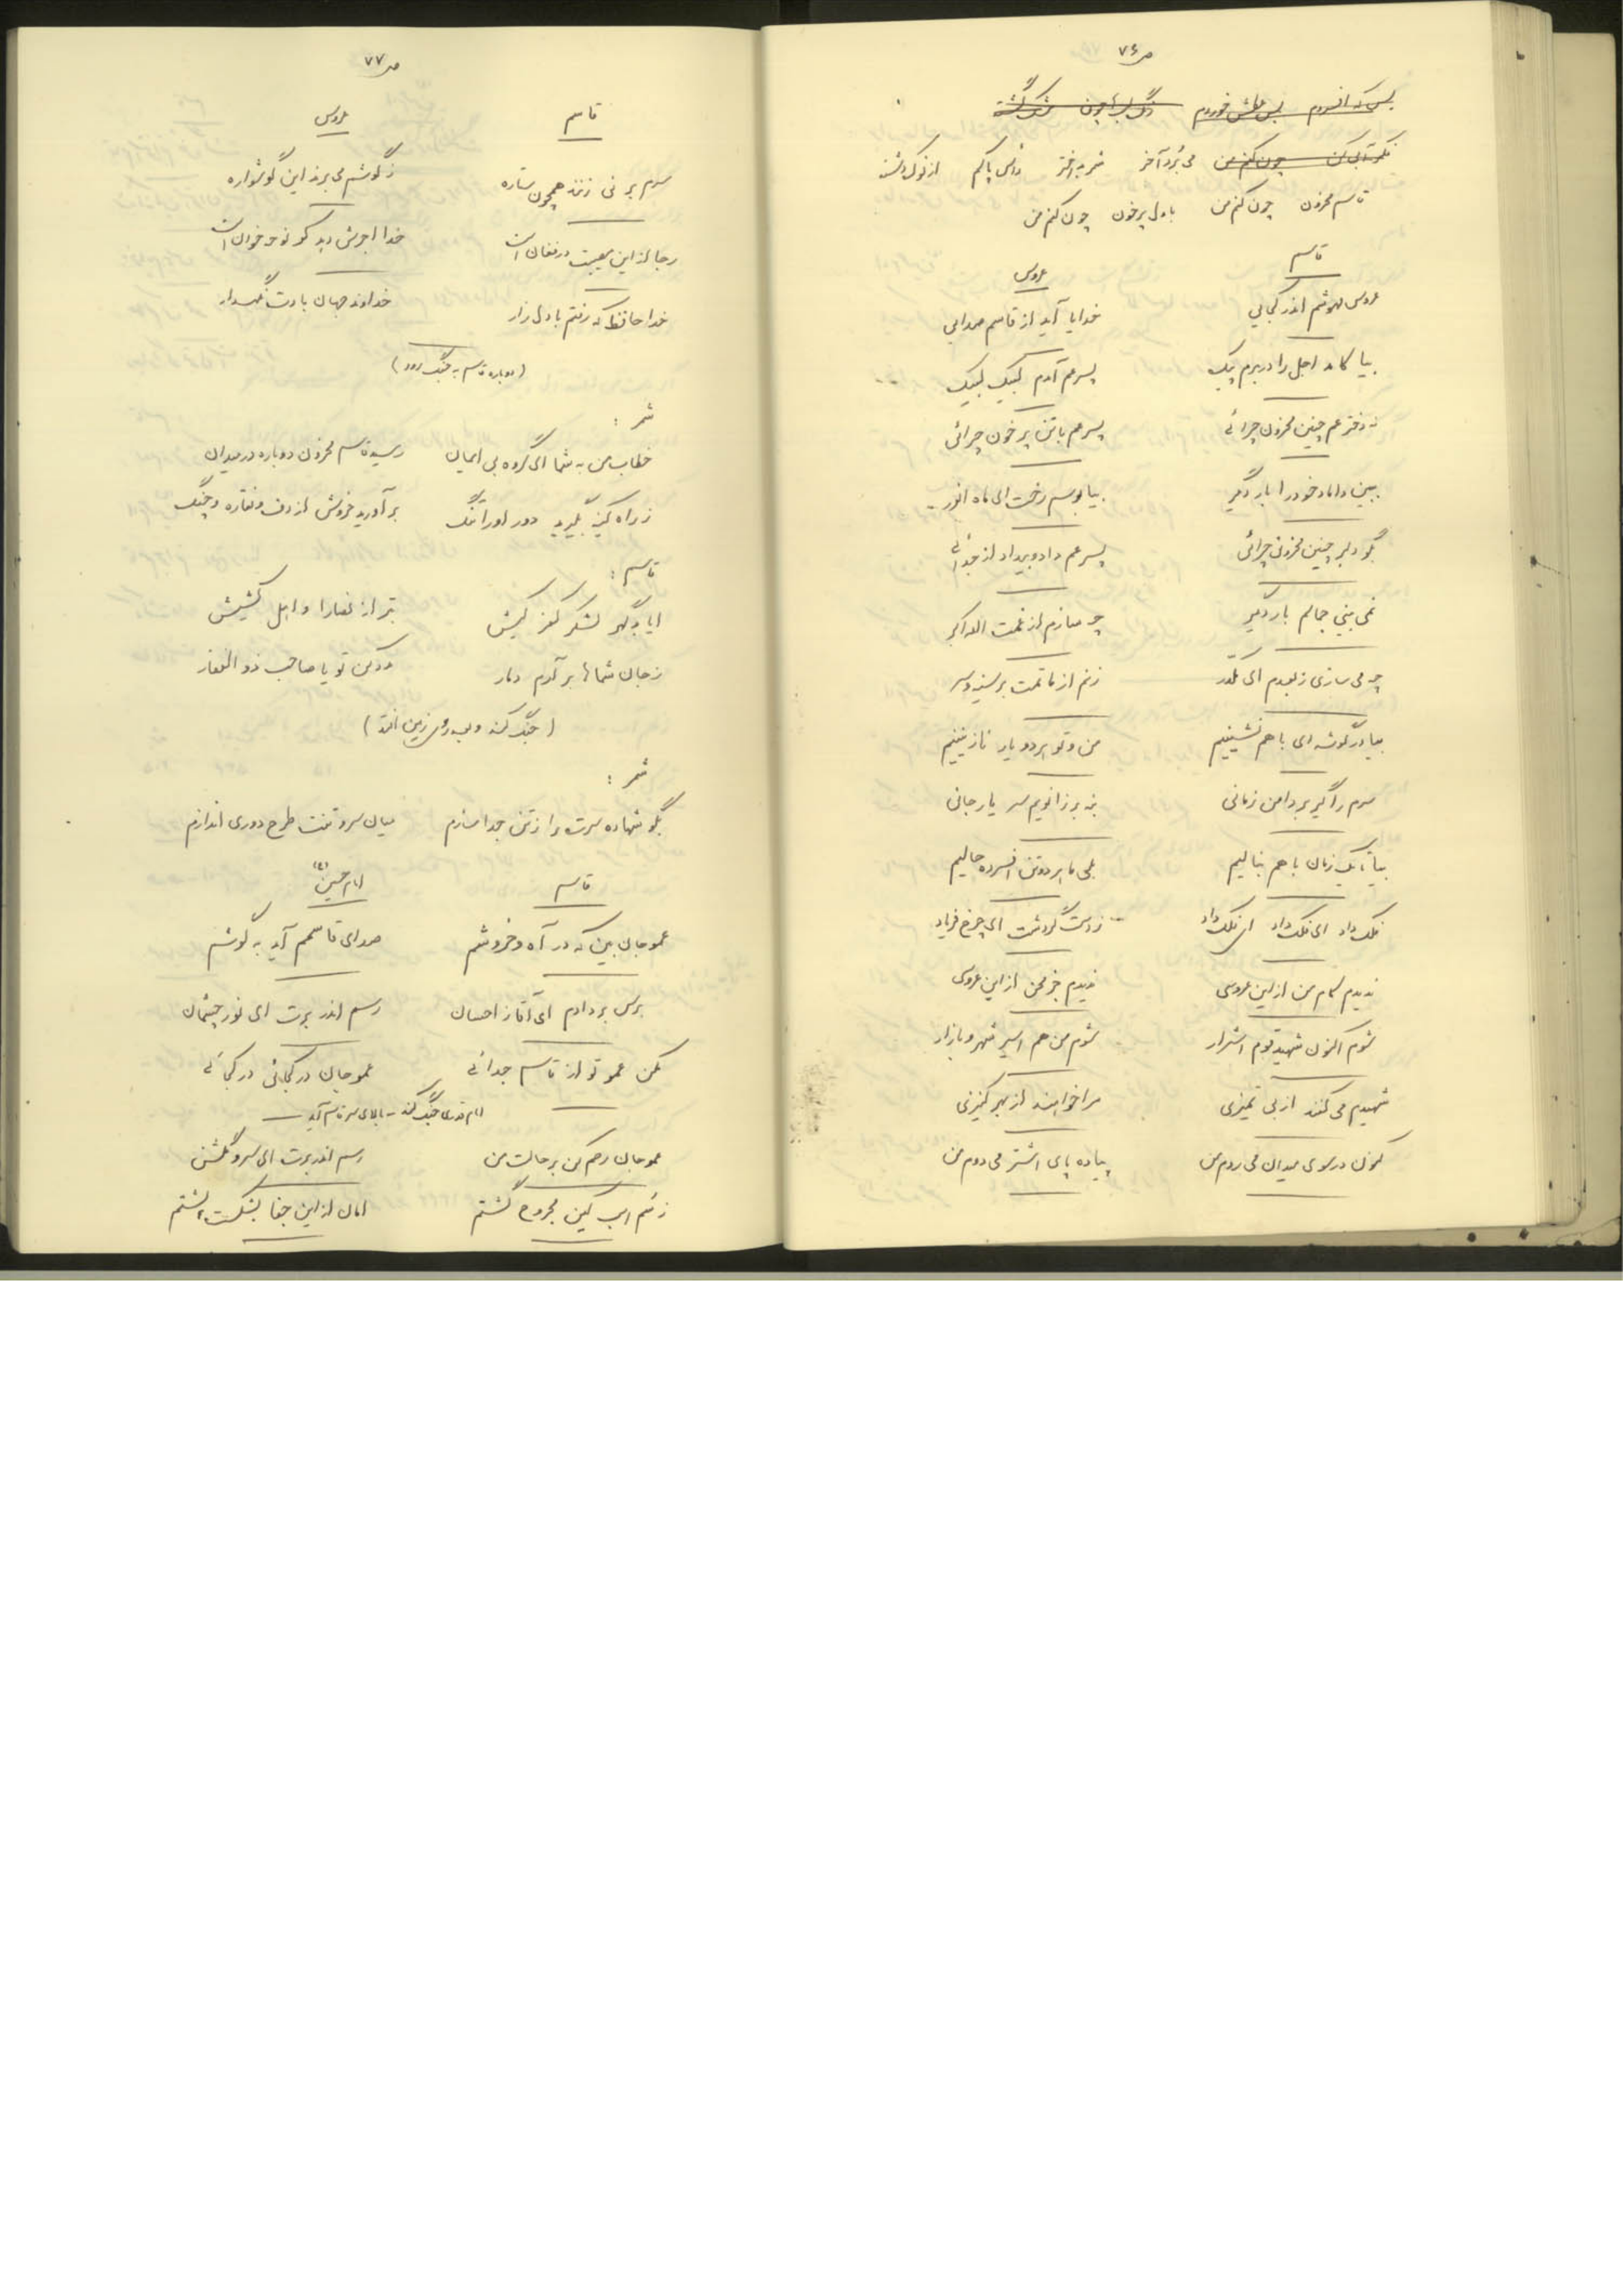 ص ۷۶
بس که افسردم بس عطش خوردم
چون کنم من می بُرد آخر شمر بد اختر راس پاکم از نوک دشنه
قاسم محزون چون کنم من با دل پرخون چون کنم من
قاسم عروس
عروس مهوشم اندر کجایی خدایا آید از قاسم صدایی
بیا کامد اجل را در برم پیک پسر عم آمدم لبیک لبیک
نه دختر عم چنین محزون چرائی پسر عم با تن پر خون چرائی
ببین داماد خود را بار دیگر بیا بوسم رخت ای ماه انور
بگو دلبر چنین محزون چرائی پسر عم داد و بیداد از جدائی
نمی بینی جمالم بار دیگر چه سازم از غمت الله اکبر
چه می سازی ز بعدم ای مکدر زنم از ماتمت بر سینه و سر
بیا در گوشه ای با هم نشینیم من و تو هر دو یار نازنینیم
سرم را گیر بر دامن زمانی بنه بر زانویم سر یار جانی
بیا تا یک زمان با هم بنالیم بلی ما هر دو تن افسرده حالیم
فلک داد ای فلک داد ای فلک داد ز دست گردشت ای چرخ فریاد
ندیدم کام من از این عروسی ندیدم جز محن از این عروسی
شوم اکنون شهید قوم اشرار شوم من هم اسیر شهر و بازار
شهیدم می کنند از بی تمیزی مرا خواهند از بهر کنیزی
کنون در سوی میدان می روم من پیاده پای اشتر می دوم من
ص ۷۷
قاسم عروس
سرم بر نی زنند همچون ستاره ز گوشم می برند این گوشواره
رجا از این مصیبت در فغان است خدا اجرش دهد کو نوحه خوان است
خدا حافظ که رفتم با دل زار خداوند جهان بادت نگهدار
(دوباره قاسم به جنگ رود)
شمر :
خطاب من به شما ای گروه بی ایمان رسید قاسم محزون دوباره در میدان
ز راه کینه بگیرید دور او را تنگ برآورید خروش از دف و نقاره و چنگ
قاسم :
ایا بدگهر لشکر کفر کیش بتر از نصارا و اهل کشیش
ز جان شماها برآرم دمار مدد کن تو یا صاحب ذوالفقار
(جنگ کند و به روی زمین افتد)
شمر :
بگو شهاده سرت را ز تن جدا سازم میان سر و تنت طرح دوری اندازم
قاسم امام حسین (ع)
عمو جان بین که در آه و خروشم صدای قاسمم آید به گوشم
برس بر دادم ای آقا ز احسان رسم اندر برت ای نور چشمان
مکن عمو تو از قاسم جدائی عمو جان در کجائی در کجائی
امام قدری جنگ کند - بالای سر قاسم آید
عمو جان رحم کن بر حالت من رسم اندر برت ای سرو گلشن
ز سُم اسب کین مجروح گشتم امان از این جفا بشکست پشتم